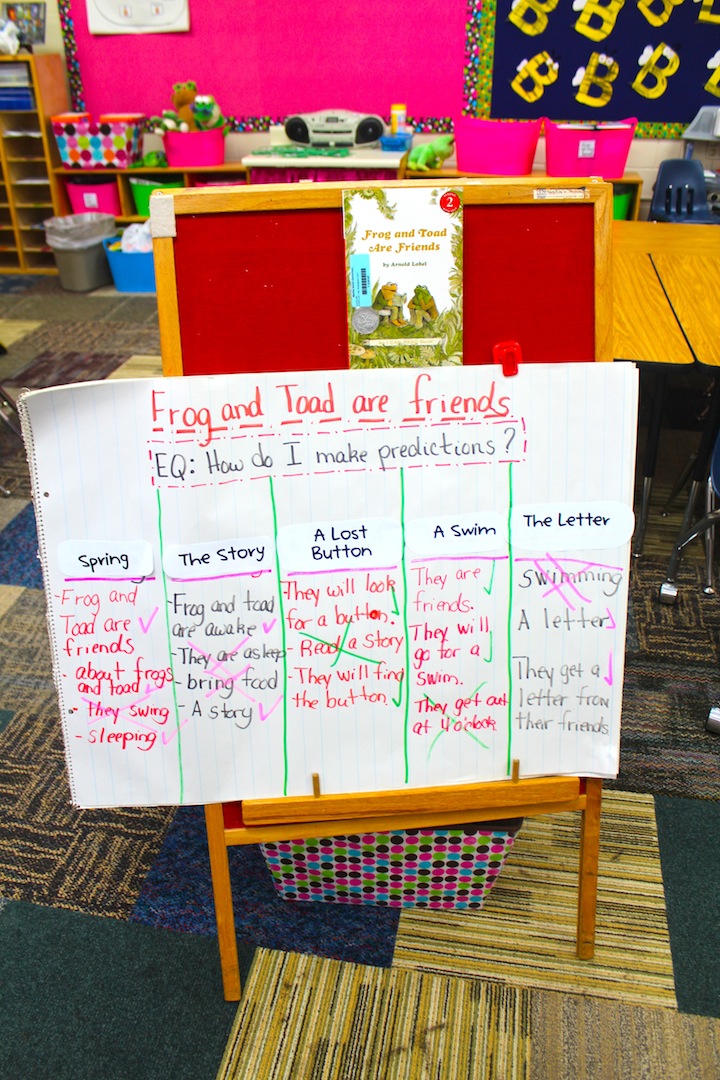 2
Frog and Toad
Are Friends
by Arnold Lobel
Frog and Toad are friends
EQ: How do I make predictions?
Spring
-Frog and
Toad are
friends
- about frogs
and toad
- They swing
- sleeping
The Story
-Frog and toad
are awake
-They are asleep
- bring food
- A story
A Lost
Button
-They will look
for a button.
- Read a story
-They will find
the button.
A Swim
They are
friends.
They will
go for a
swim.
They get out
at 4 o'clock
The Letter
swimming
A letter
They get a
letter from
their friends
B
B
B
B
B
B
B